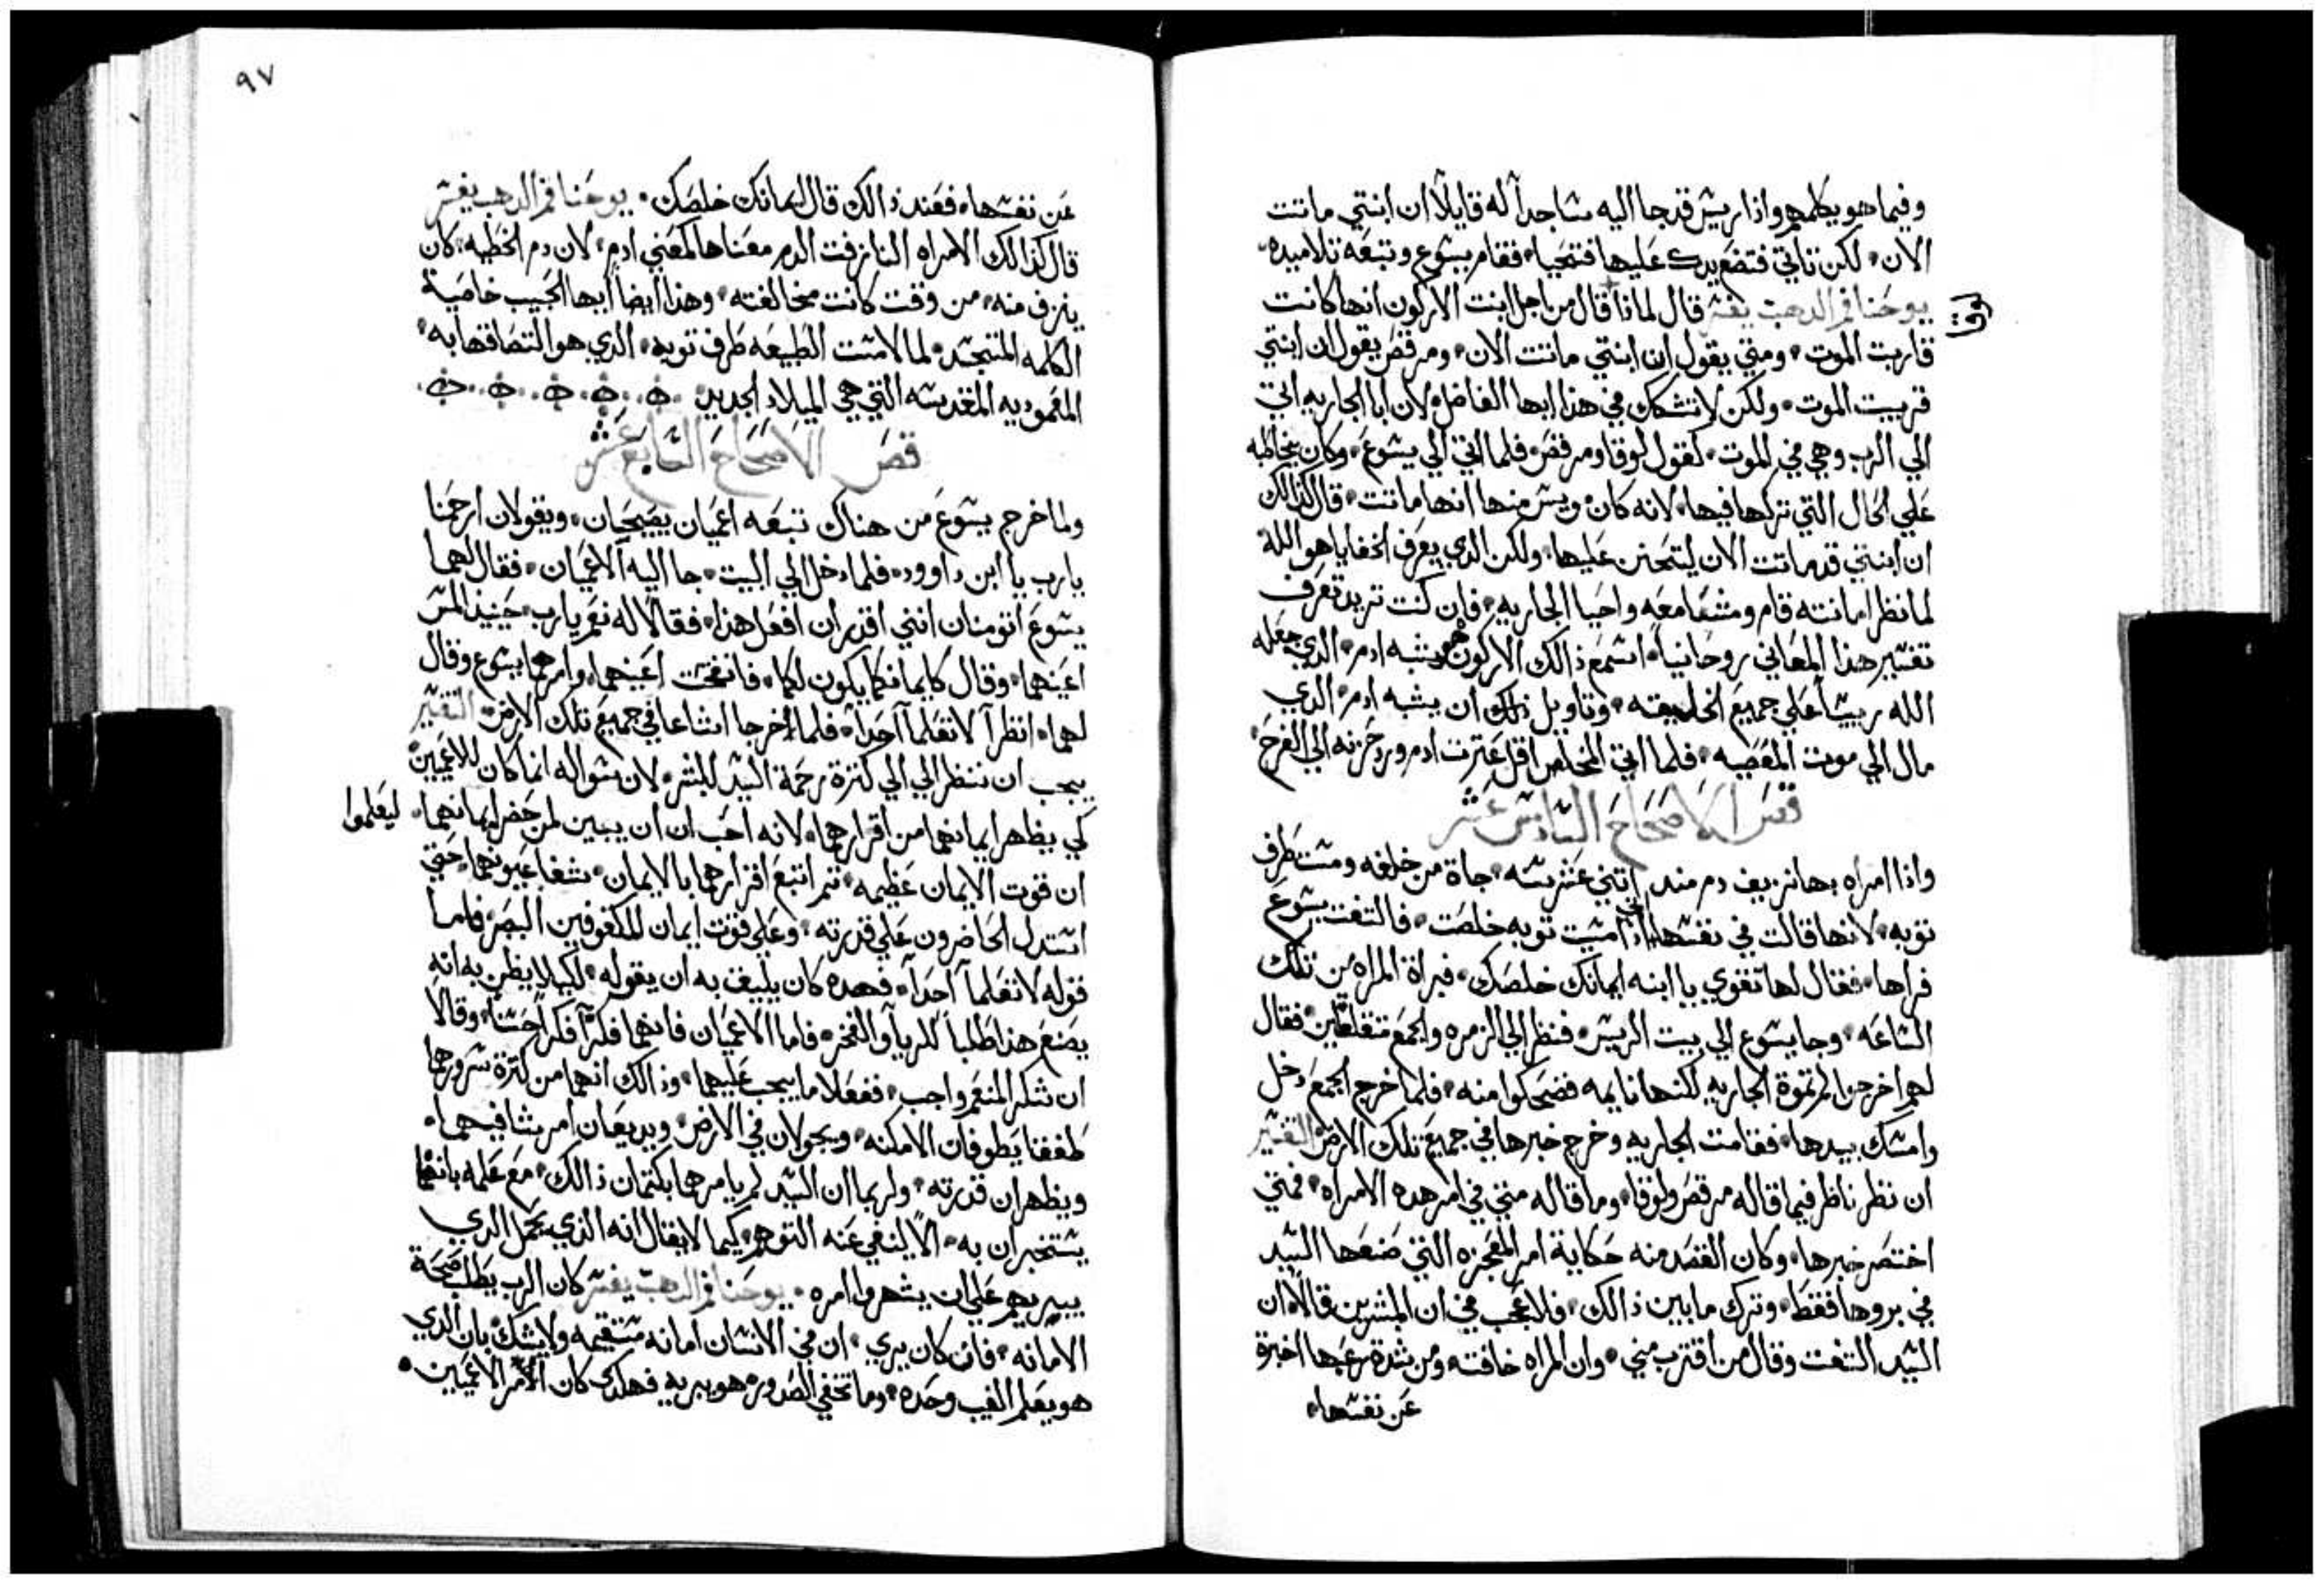 وفيما هو يكلمهم واذا ريس قد جا اليه ساجداً له قايلاً ان ابنتي ماتت
الان، لكن تاتي فتضع يدك عليها فتحيا، فقام يسوع وتبعه تلاميده
يوحنا فم الدهب يفسر قال لماذا قال من اجل ابنت الاركون انها كانت
لوقا
قاربت الموت، ومتي يقول ان ابنتي ماتت الان، ومرقص يقول ان ابنتي
قربيت الموت، ولكن لا تشكك في هذا ايها الفاضل، لان ابا الجاريه اتي
الي الرب وهي في الموت، كقول لوقا ومرقص، فلما اتي الي يسوع، وكان يخاطبه
علي الحال التي تركها فيها، لانه كان ويس منها انها ماتت، قال كذالك
ان ابنتي قد ماتت الان ليتحنن عليها، ولكن الدي يعرف الخفايا هو الله
لما نظر امانته قام ومشا معه واحيا الجاريه، فان كنت تريد تعرف
تفسير هذا المعاني روحانياً، اسمع ذالك الاركون هو يشبه ادم، الدي جعله
الله ريساً علي جميع الخليقته، وتاويل ذلك ان يشبه ادم، الدي
مال الي موت المعصيه، فلما اتي المخلص اقل عترت ادم ورد حزنه الي الفرح،
قص الاصحاح السادس عشر
واذا امراه بها نزيف دم مند اتني عشر سنه، جاة من خلفه ومست طرف
توبه، لانها قالت في نفسها اني اذا امسيت توبه خلصت، فالتفت يسوع
فراها، فقال لها تقوي يا ابنه ايمانك خلصك، فبراة المراه من تلك
الساعه، وجا يسوع الي بيت الريس، فنظر الي الزمره والجمع متقلقلين، فقال
لهم اخرجوا لم تموة الجاريه لكنها نايمه فضحكوا منه، فلما خرج الجمع دخل
وامسك بيدها، فقامت الجاريه وخرج خبرها في جميع تلك الارض، التفسير
ان نظر ناظر فيما قاله مرقص ولوقا، وما قاله متي في امر هده الامراه، فمتي
اختصر خبرها، وكان القصد منه حكاية امر المعجزه التي صنعها السيد
في بروها فقط، وترك ما بين ذالك، فلا عجب في ان المبشرين قالاً، ان
السيد التفت وقال من اقترب مني، وان المراه خافته ومن شدة رعبها اخبرة
عن نفسها،
٩٧
عن نفسها، فعند ذالك قال ايمانك خلصك، يوحنا فم الدهب يفسر
قال كذالك الامراه النازفت الدم معناها كمعني ادم، لان دم الخطيه، كان
ينزف منه، من وقت كانت مخالفته، وهذا ايضاً ايها الحبيب خاصية
الكلمه المتجسد، لما لامست الطبيعه طرف توبه، الدي هو التصاقها به،
المعموديه المقدسه التي هي الميلاد الجديد
قص الاصحاح السابع عشر
ولما خرج يسوع من هناك تبعه اعميان يصيحان، ويقولان ارحمنا
يارب يا ابن داوود، فلما دخل الي البيت، جا اليه الاعميان، فقال لهما
يسوع اتومنان انني اقدر ان افعل هذا، فقالا له نعم يارب، حينيذ المس
اعينهما، وقال كايمانكما يكون لكما، فانفتحت اعينهما، وامرهما يسوع وقال
لهما، انظرا لا تعلما احداً، فلما خرجا اشاعا في جميع تلك الارض، التفسير
يجب ان ننظر الي الي كترة رحمة السيد للبشر، لان سواله انما كان للاعميين
كي يظهر ايمانهما من اقرارهما، لانه احب ان ان يبين لمن حضر ايمانهما، ليعلموا
ان قوت الايمان عظيمه، تم اتبع اقرارهما بالايمان، بشفا عيونهما، حتي
استدل الحاضرون علي قدرته، وعلي قوت ايمان المكفوفين البصر، فاما
قوله لا تعلما احداً، فهده كان يليق به ان يقوله، لكيلا يظن به انه
يصنع هذا طلباً للريا والفخر، فاما الاعميان فانهما فكرا فكراً حسناً، وقالا
ان شكر المنعم واجب، ففعلا ما يجب عليهما، وذالك انهما من كترة سرورهما
طفقا يطوفان الامكنه، ويجولان في الارض، ويديعان امر شافيهما،
ويظهران قدرته، ولربما ان السيد لم يامرهما بكتمان ذالك، مع علمه بانهما
يستخبران به، الا لينفي عنه التوهم، كيما لا يقال انه الذي يحمل الدي
يبريهم علي ان يشهروا امره، يوحنا فم الدهب يفسر كان الرب يطلب صحة
الامانه، فان كان يري، ان في الانسان امانه مستقيمه ولا يشك بان الدي
هو يعلم الغيب وحده، وما تخفي الصدور، هو يبريه فهكدي كان الامر الاعميين،